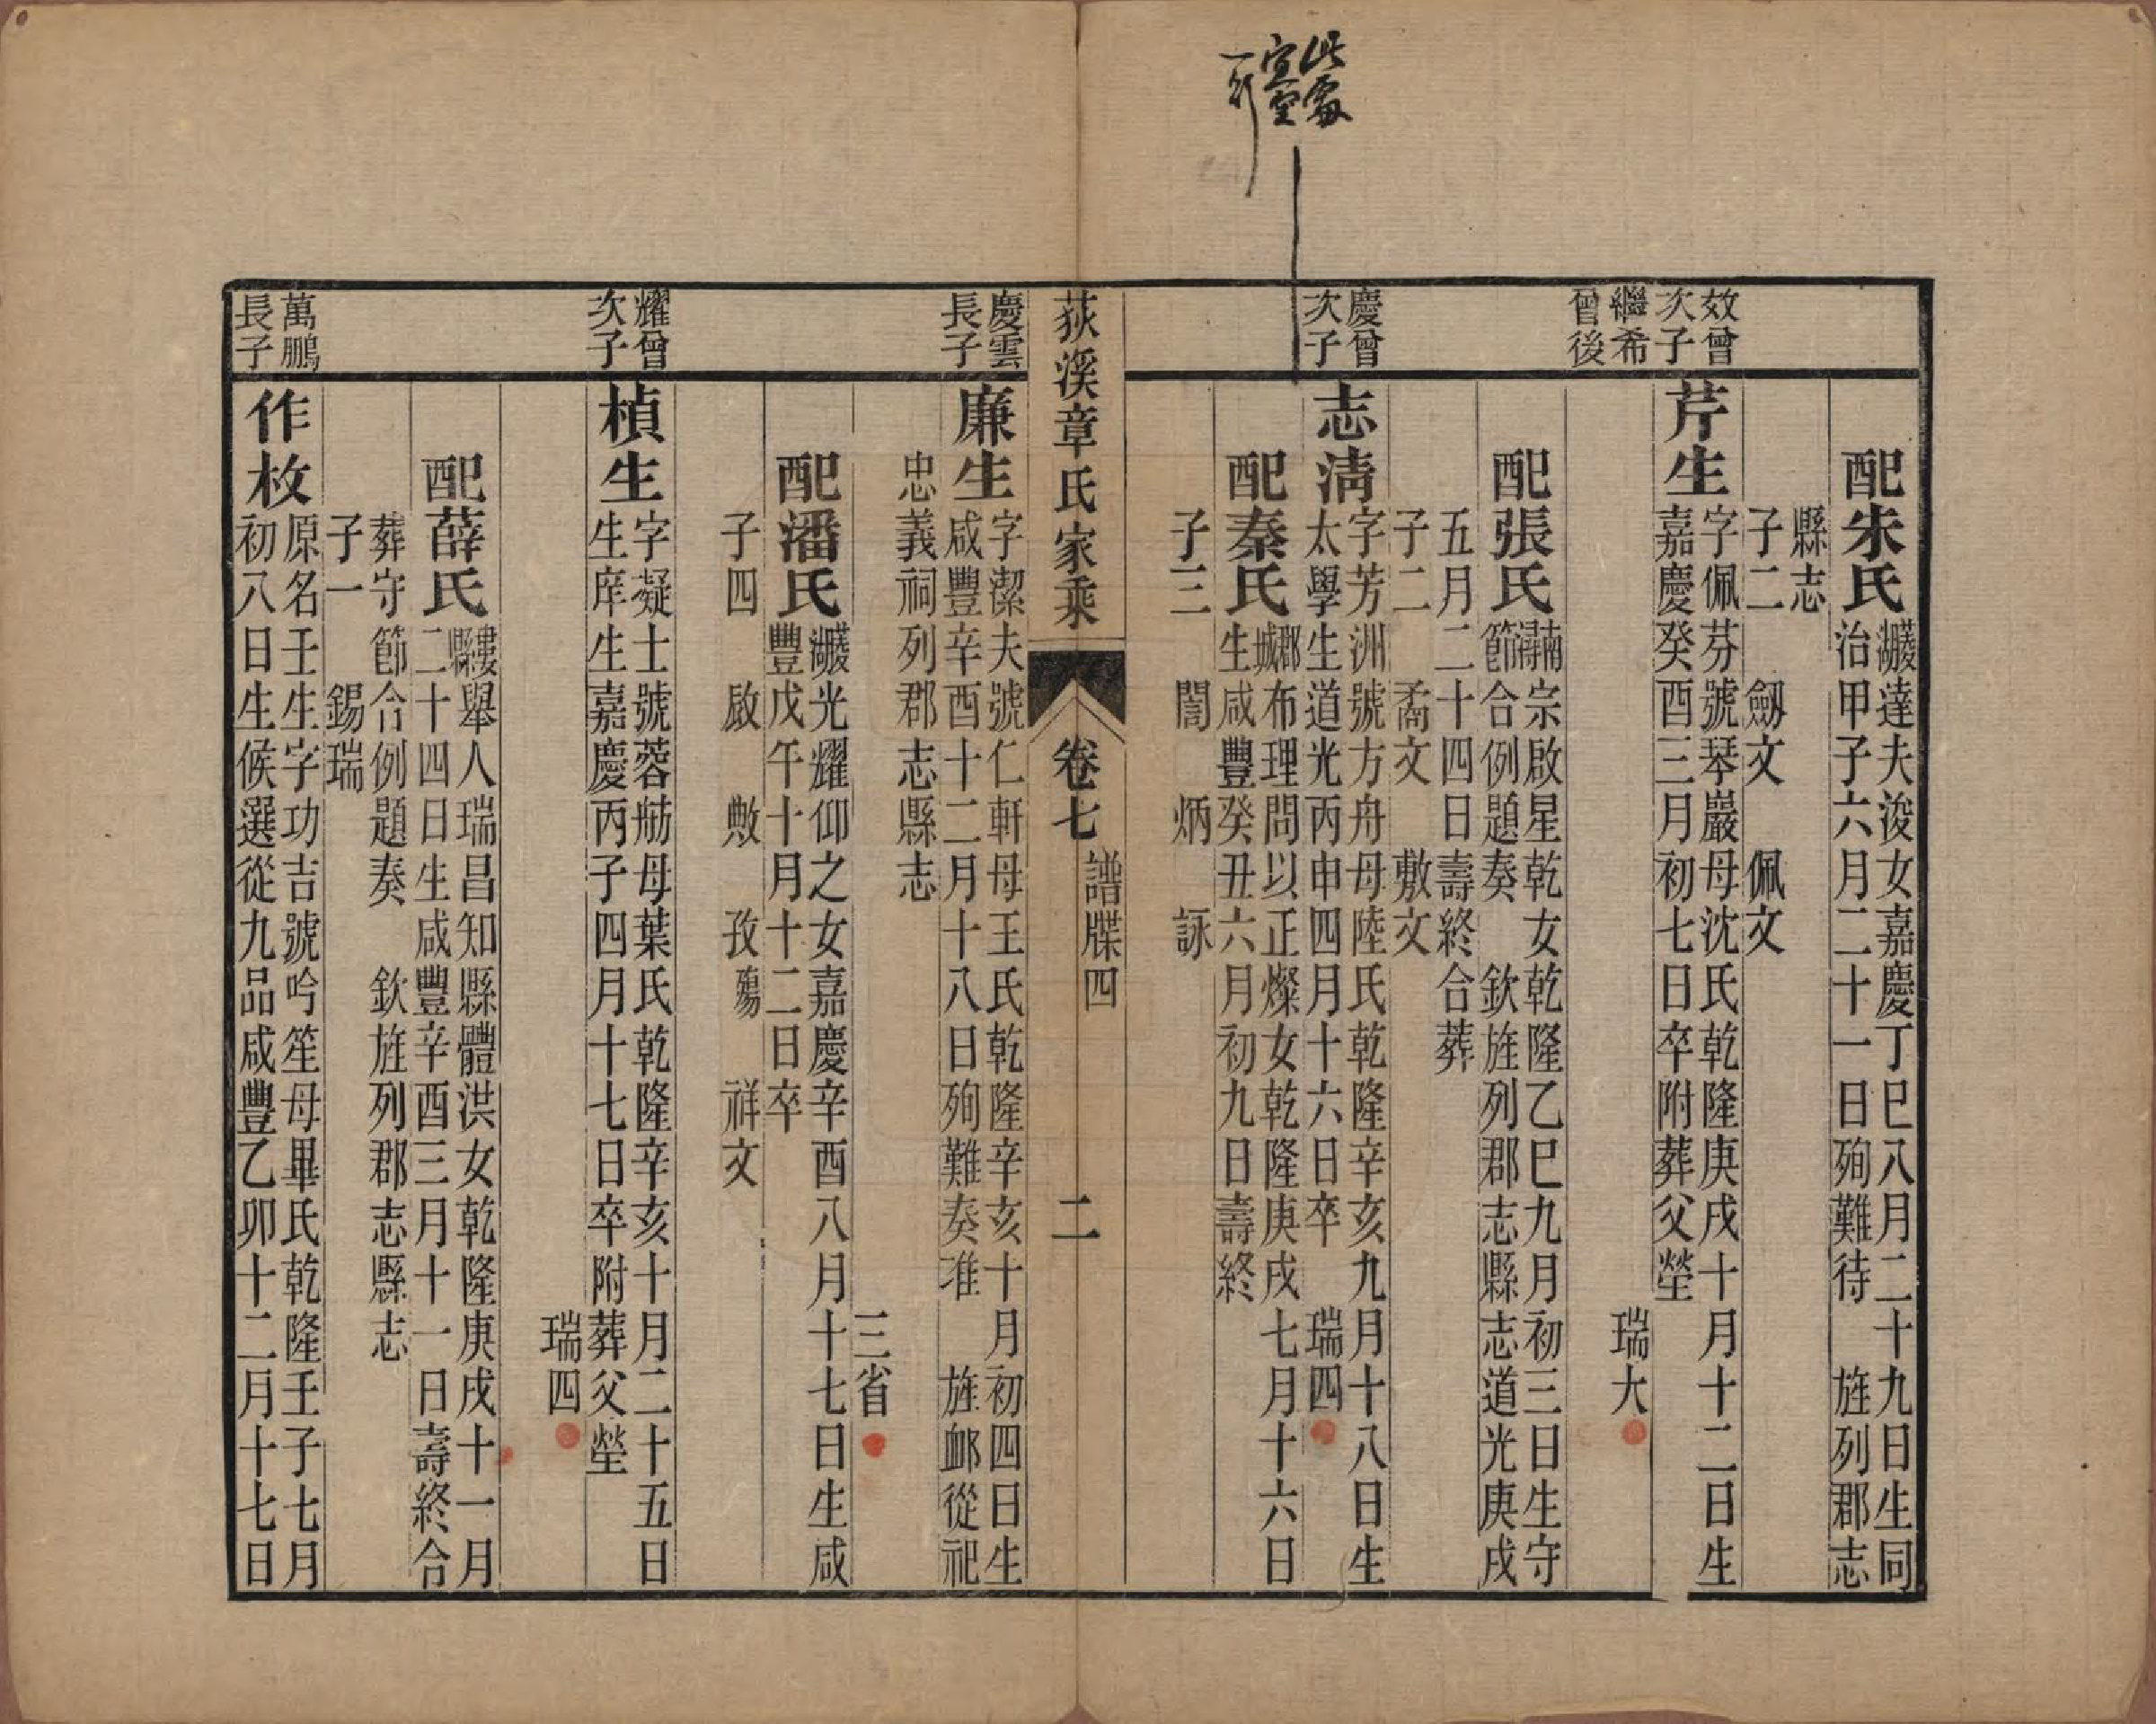 此處
宜空
一行
配朱氏
菱湖達夫浚女嘉慶丁巳八月二十九日生同
治甲子六月二十一日殉難待　旌列郡志
縣志
子二　劒文　佩文
效曾
次子
繼希
曾後
芹生
字佩芬號琴巖母沈氏乾隆庚戌十月十二日生
嘉慶癸酉三月初七日卒附葬父塋
瑞大
配張氏
南潯宗啟星乾女乾隆乙巳九月初三日生守
節合例題奏　欽旌列郡志縣志道光庚戌
五月二十四日壽終合葬
子二　矞文　敷文
慶曾
次子
志淸
字芳洲號方舟母陸氏乾隆辛亥九月十八日生
太學生道光丙申四月十六日卒　瑞四
配秦氏
郡城布理問以正燦女乾隆庚戌七月十六日
生咸豐癸丑六月初九日壽終
子三　誾　炳　詠
荻溪章氏家乘　卷七　譜牒四　二
慶雲
長子
廉生
字潔夫號仁軒母王氏乾隆辛亥十月初四日生
咸豐辛酉十二月十八日殉難奏准　旌卹從祀
忠義祠列郡志縣志
三省
配潘氏
菱湖光耀仰之女嘉慶辛酉八月十七日生咸
豐戊午十月十二日卒
子四　敃　敷　孜殤　祥文
耀曾
次子
楨生
字凝士號蓉舫母葉氏乾隆辛亥十月二十五日
生庠生嘉慶丙子四月十七日卒附葬父塋
瑞四
配薛氏
婁縣舉人瑞昌知縣體洪女乾隆庚戌十一月
二十四日生咸豐辛酉三月十一日壽終合
葬守節合例題奏　欽旌列郡志縣志
子一　錫瑞
萬鵬
長子
作枚
原名壬生字功吉號吟笙母畢氏乾隆壬子七月
初八日生候選從九品咸豐乙卯十二月十七日